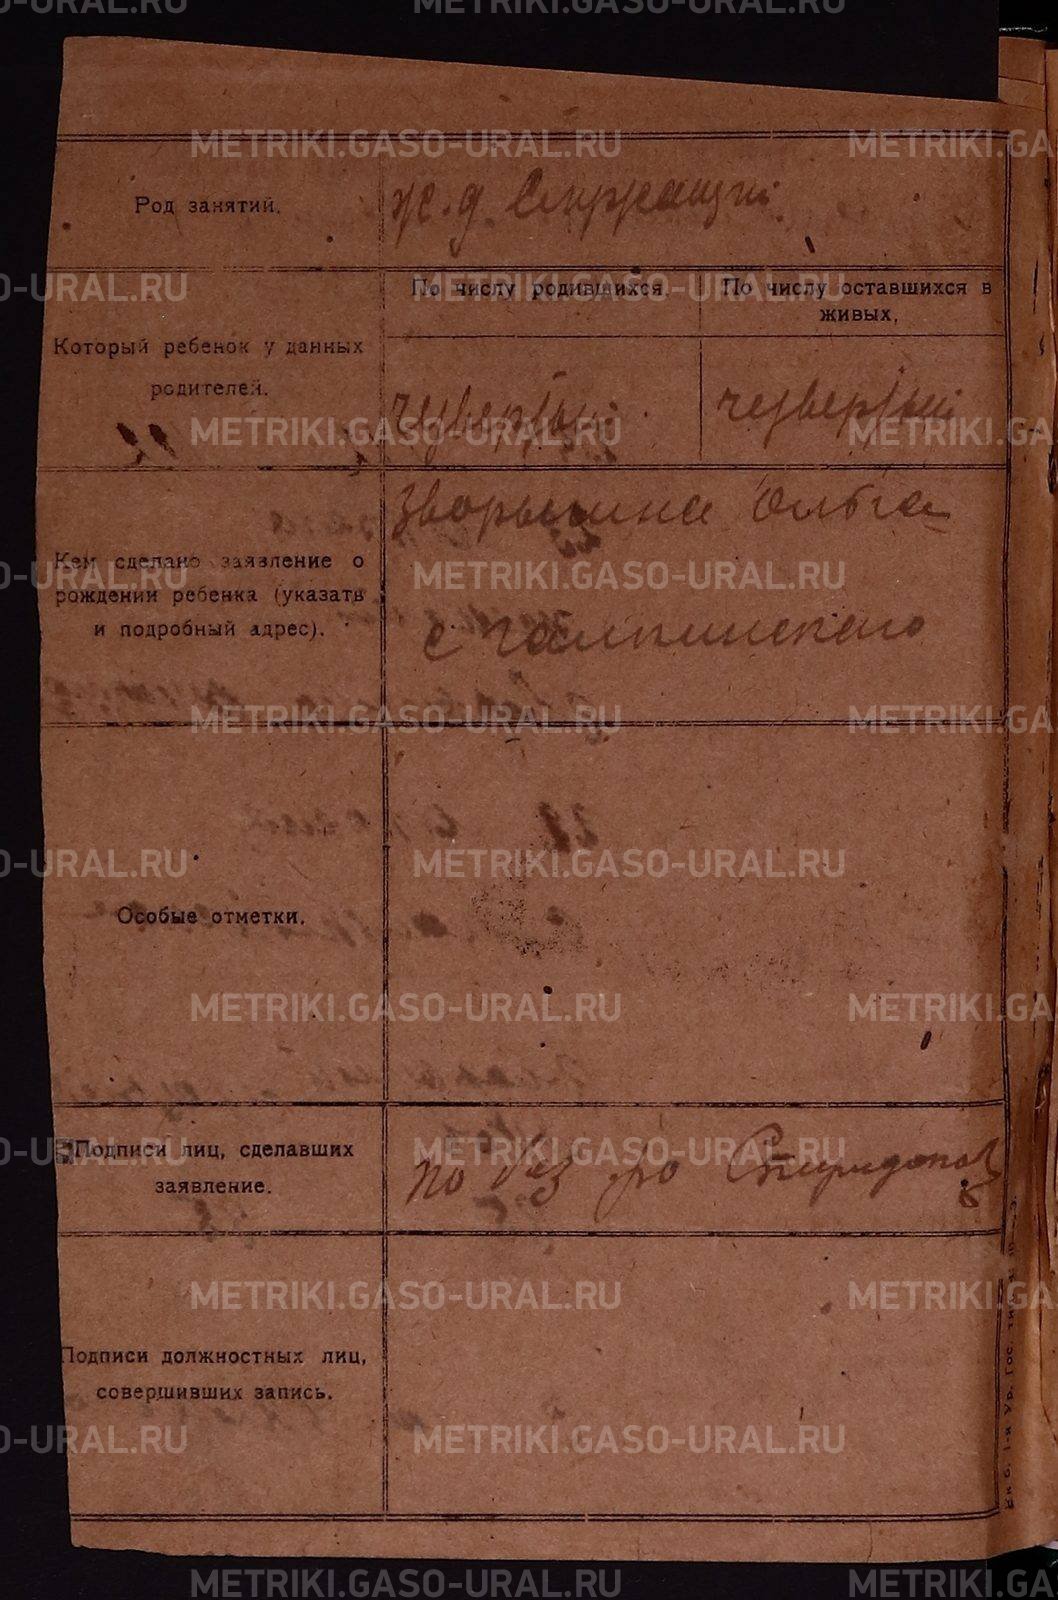 METRIKI.GASO-URAL.RU
Род занятий.
ж.д.
По числу родившихся.
По числу оставшихся в живых,
Который ребенок у данных
родителей.
четвертый.
четвертый
Кем сделано заявление о
рождении ребенка (указать
и подробный адрес).
Зворыгина Ольга
с Галкинского
Особые отметки.
Подписи лиц, сделавших
заявление.
по Спиридонов
Подписи должностных лиц,
совершивших запись.